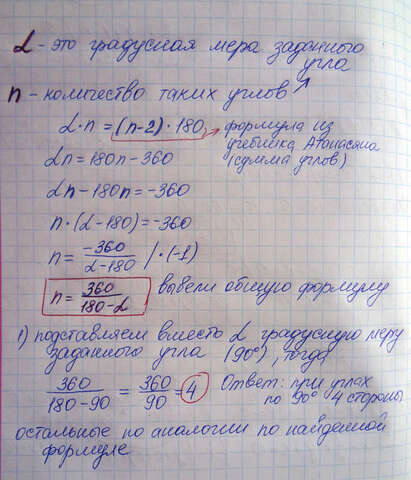 α - это градусная мера заданного
угла
n - количество таких углов
α·n = (n-2)·180 формула из
учебника Атанасяна
(сумма углов)
αn = 180n - 360
αn - 180n = -360
n·(α-180) = -360
n = -360/(α-180) /·(-1)
n = 360/(180-α) вывели общую формулу
1) подставляем вместо α градусную меру
заданного угла (90°), тогда
360/(180-90) = 360/90 = 4 Ответ: при углах
по 90° 4 стороны
остальные по аналогии по найденной
формуле